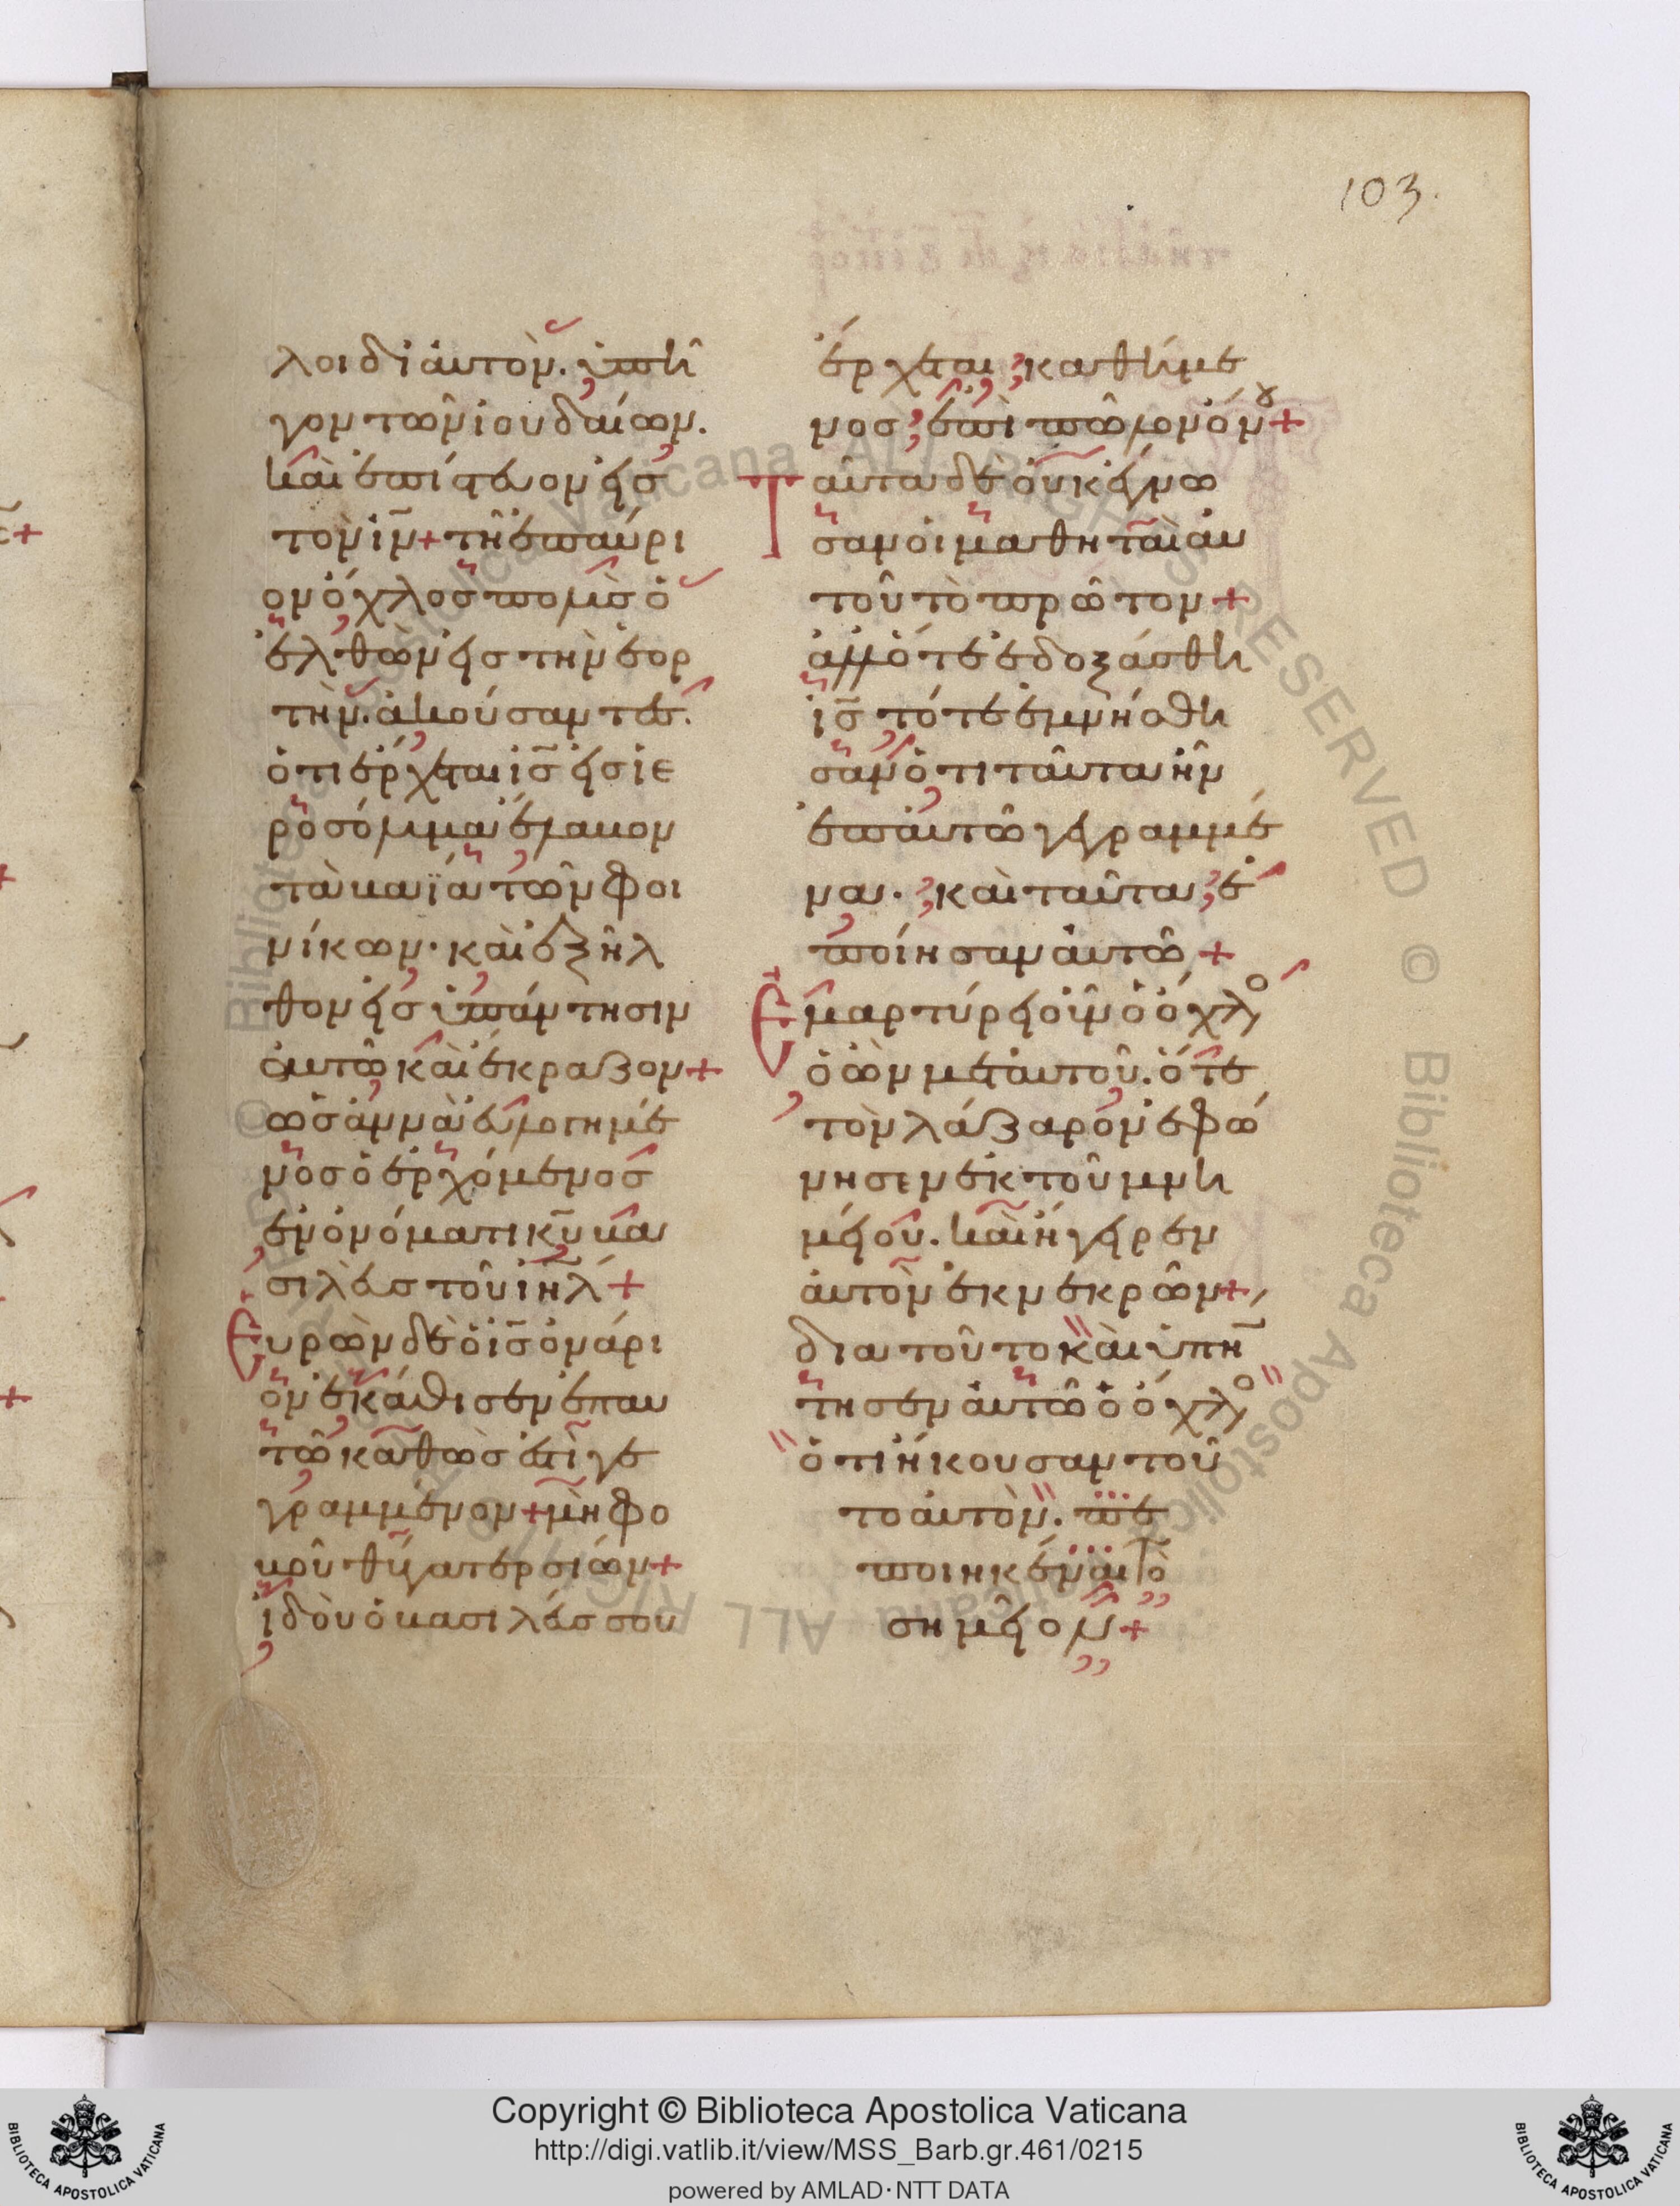 103.
λοι δι αυτὸν. ὑπῆ
γον τῶν ἰουδαίων.
καὶ ἐπίστευον εἰσ
τὸν ἰν̄ + τῆ ἐπαύρι
ον ὄχλοσ πολὺσ ὁ
ἐλθὼν εἰσ τὴν ἑορ
τὴν. ἀκούσαντεσ.
ὅτι ἔρχεται ἰσ̄ εἰσ ἱε
ροσόλυμα ἔλαβον
τὰ βαϊα τῶν φοι
νίκων· καὶ ἐξῆλ
θον εἰσ ὑπάντησιν
αυτῶ καὶ ἔκραζον +
ὡσαννὰ εὐλογημέ
νοσ ὁ ἐρχόμενοσ
ἐν ὀνόματι κῡ βα
σιλεὺσ τοῦ ἰηλ̄ +
Ευρὼν δὲ ὁ ἰσ̄ ὀνάρι
ον ἐκάθισεν ἐπ αυ
τῶ καθώσ ἐστι γε
γραμμένον + μὴ φο
βοῦ θύγατερ σιών +
ἰδοὺ ὁ βασιλεύσ σου
ἔρχεται καθήμε
νοσ ἐπὶ πῶλον ὄνου +
Ταῦτα δὲ οὐκ ἔγνω
σαν οἱ μαθηταὶ αυ
τοῦ τὸ πρῶτον +
ἀλλ ὅτε ἐδοξάσθη
ἰσ̄ τότε ἐμνήσθη
σαν ὅτι ταῦτα ἦν
ἐπ αυτῶ γεγραμμέ
να. καὶ ταῦτα ἐ
ποίησαν αυτῶ +
Εμαρτύρει οὖν ὁ ὄχλο
ὁ ὢν μετ αυτοῦ. ὅτε
τὸν λάζαρον ἐφώ
νησεν ἐκ τοῦ μνη
μείου. καὶ ἤγειρεν
αυτὸν ἐκ νεκρῶν +
δια τοῦτο καὶ ὑπήν
τησεν αυτῶ ὁ ὄχλο
ὅτι ἤκουσαν τοῦ
το αυτὸν. πε
ποιηκέναι τὸ
σημεῖον +
Copyright © Biblioteca Apostolica Vaticana
http://digi.vatlib.it/view/MSS_Barb.gr.461/0215
powered by AMLAD·NTT DATA